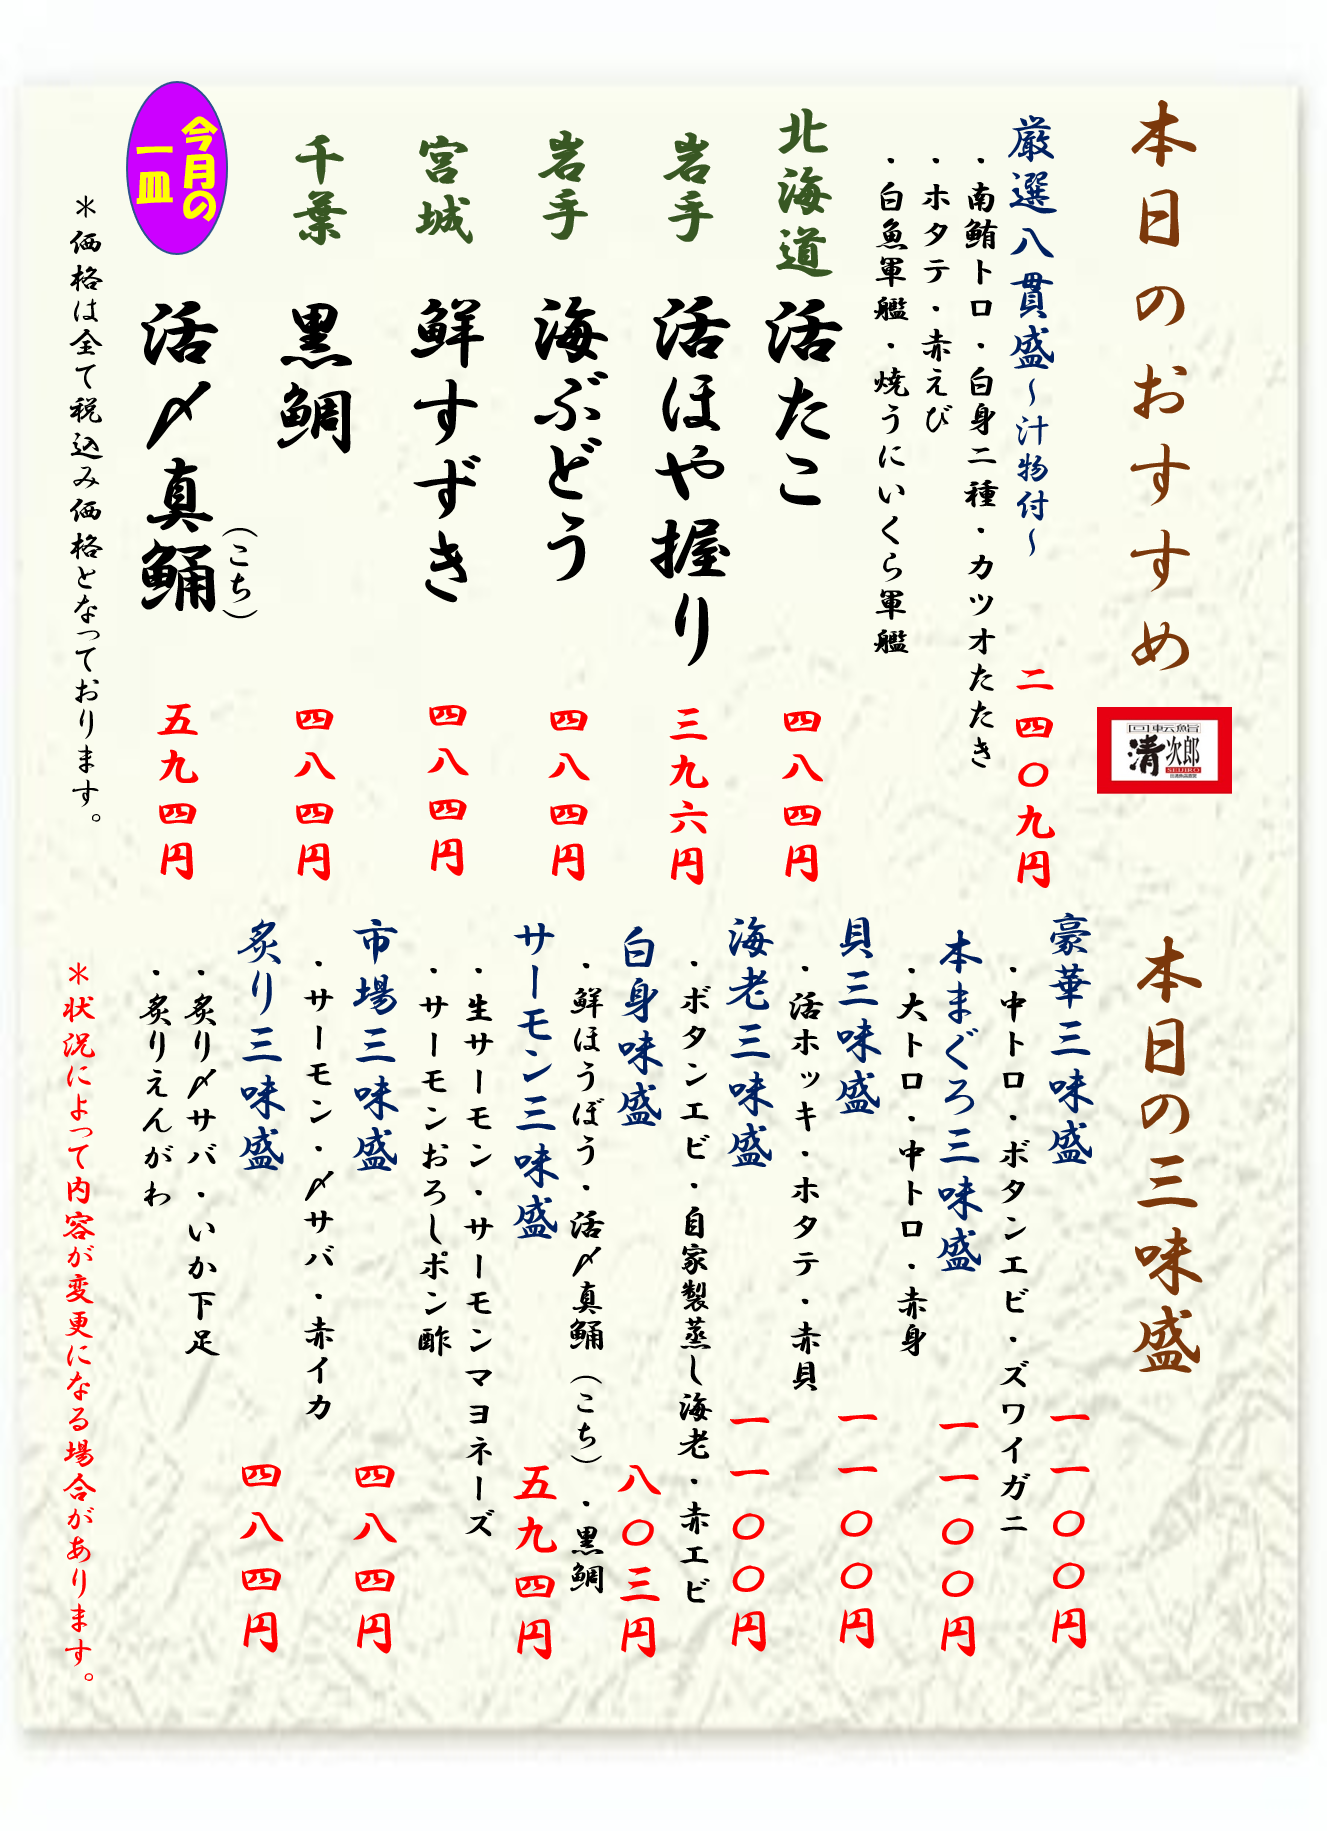 本日のおすすめ
回転鮨
清次郎
SEIJIRO
厳選八貫盛～汁物付～
二四〇九円
・南鮪トロ・白身二種・カツオたたき
・ホタテ・赤えび
・白魚軍艦・焼うにいくら軍艦
北海道 活たこ 四八四円
岩手 活ほや握り 三九六円
岩手 海ぶどう 四八四円
宮城 鮮すずき 四八四円
千葉 黒鯛 四八四円
今月の
一皿
活〆真鯒
（こち）
五九四円
＊価格は全て税込み価格となっております。
本日の三味盛
豪華三味盛 一一〇〇円
・中トロ・ボタンエビ・ズワイガニ
本まぐろ三味盛 一一〇〇円
・大トロ・中トロ・赤身
貝三味盛 一一〇〇円
・活ホッキ・ホタテ・赤貝
海老三味盛 一一〇〇円
・ボタンエビ・自家製蒸し海老・赤エビ
白身味盛 八〇三円
・鮮ほうぼう・活〆真鯒（こち）・黒鯛
サーモン三味盛 五九四円
・生サーモン・サーモンマヨネーズ
・サーモンおろしポン酢
市場三味盛 四八四円
・サーモン・〆サバ・赤イカ
炙り三味盛 四八四円
・炙り〆サバ・いか下足
・炙りえんがわ
＊状況によって内容が変更になる場合があります。